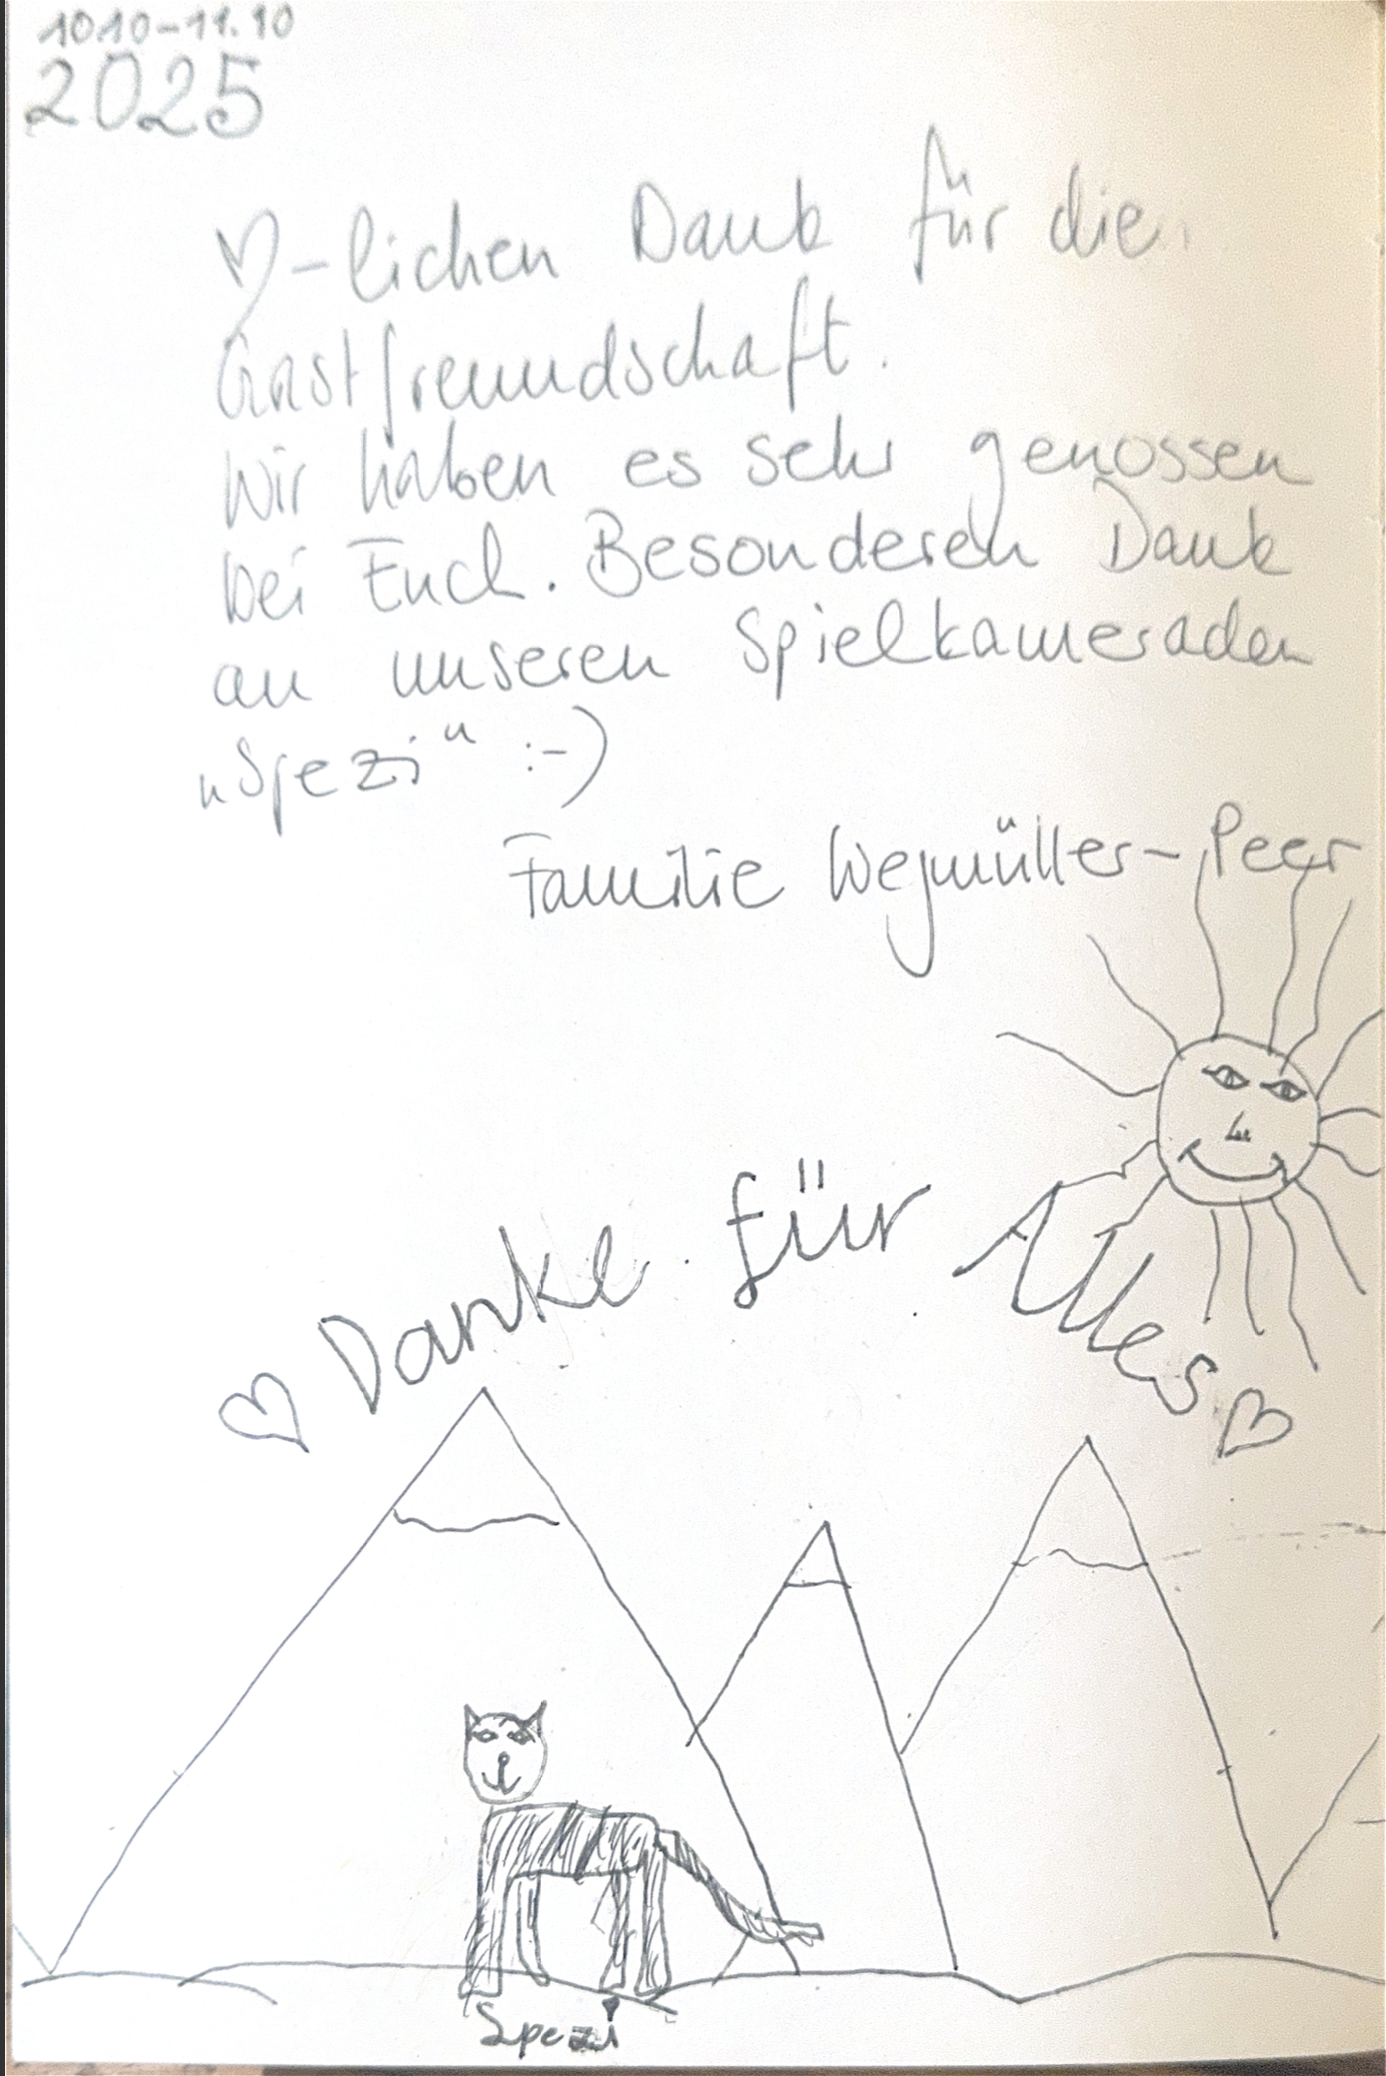 10.10-11.10
2025
♡-lichen Dank für die
Gastfreundschaft.
Wir haben es sehr genossen
bei Euch. Besonderen Dank
an unseren Spielkameraden
„Spezi“ :-)
Familie Wegmüller-Peer
♡ Danke für Alles ♡
Spezi